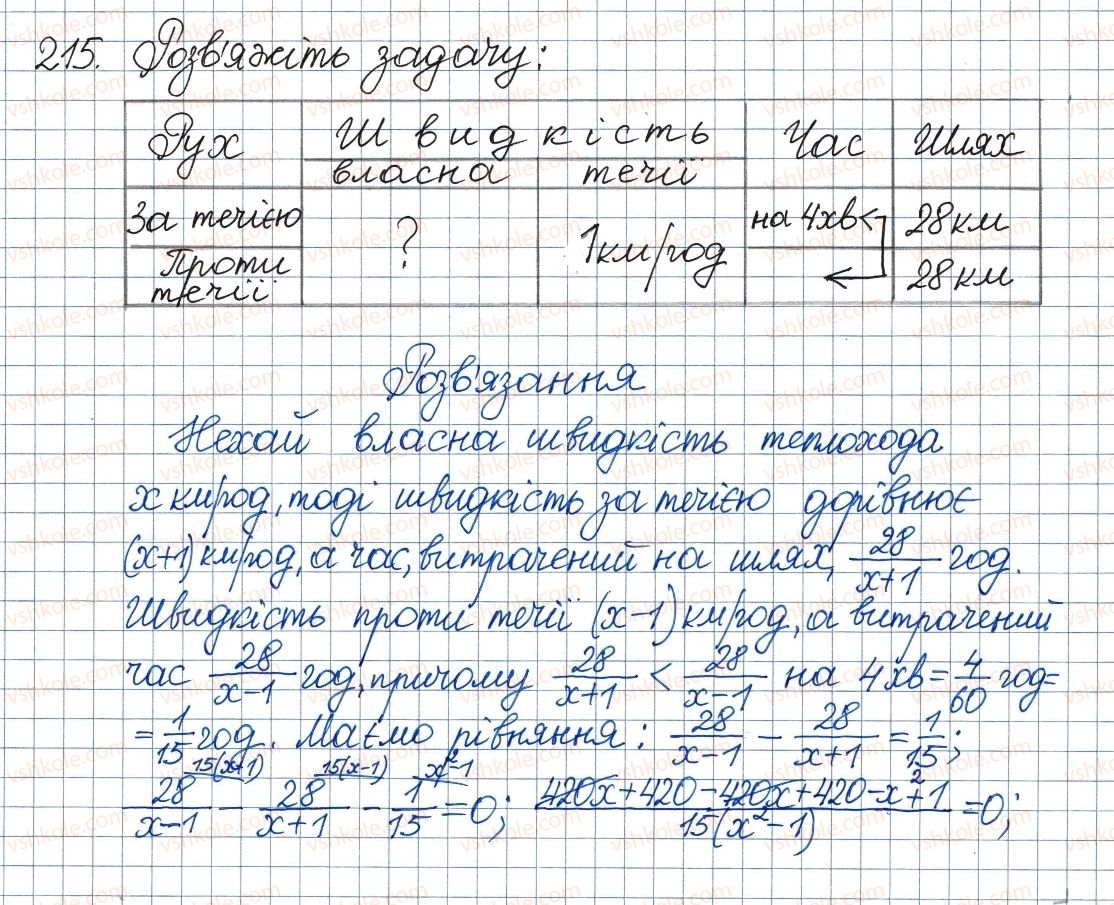 215. Розв'яжіть задачу:
Рух Швидкість Час Шлях
власна течії
За течією ? 1км/год на 4хв< 28км
Проти течії 28км
Розв'язання
Нехай власна швидкість теплохода
х км/год, тоді швидкість за течією дорівнює
(х+1) км/год, а час, витрачений на шлях, 28/(х+1) год.
Швидкість проти течії (х-1) км/год, а витрачений
час 28/(х-1) год, причому 28/(х+1) < 28/(х-1) на 4хв = 4/60 год =
= 1/15 год. Маємо рівняння: 28/(х-1) - 28/(х+1) = 1/15;
15(х+1) 15(х-1) х²-1
28/(х-1) - 28/(х+1) - 1/15 = 0; (420х+420-420х+420-х²+1)/(15(х²-1)) = 0;